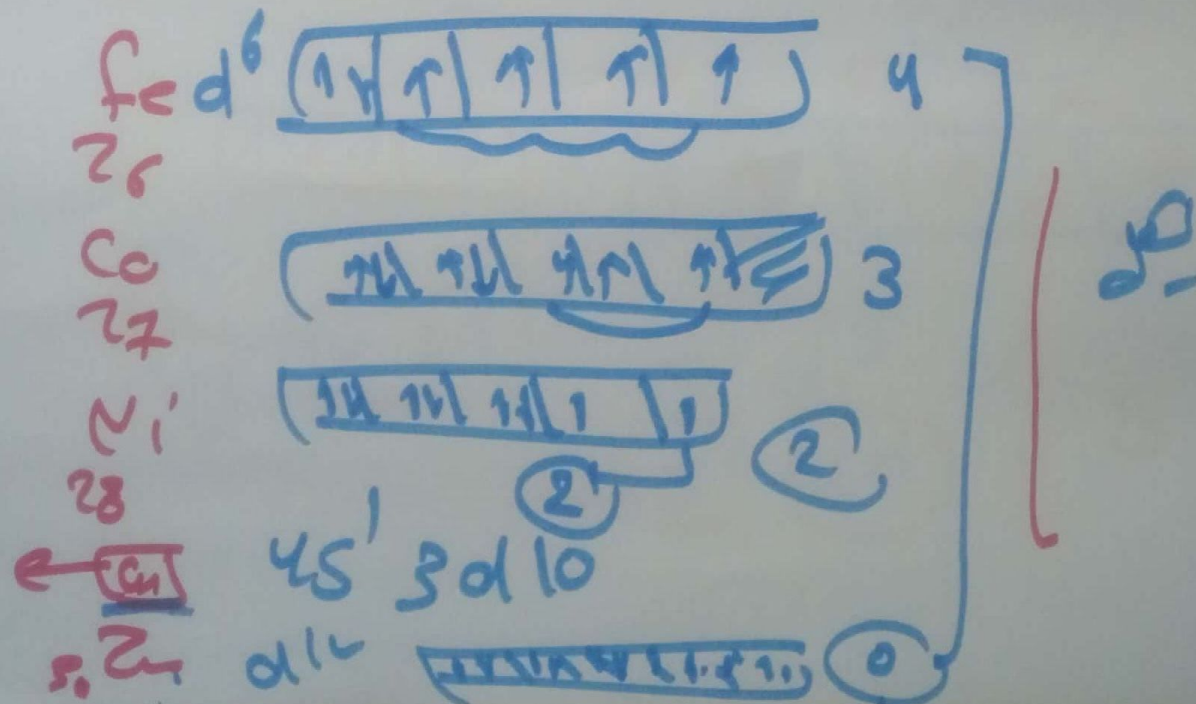 fe d⁶ 4
26
Co 3
27
Ni 2
28 2
Cu 4s¹ 3d10
Zn 0